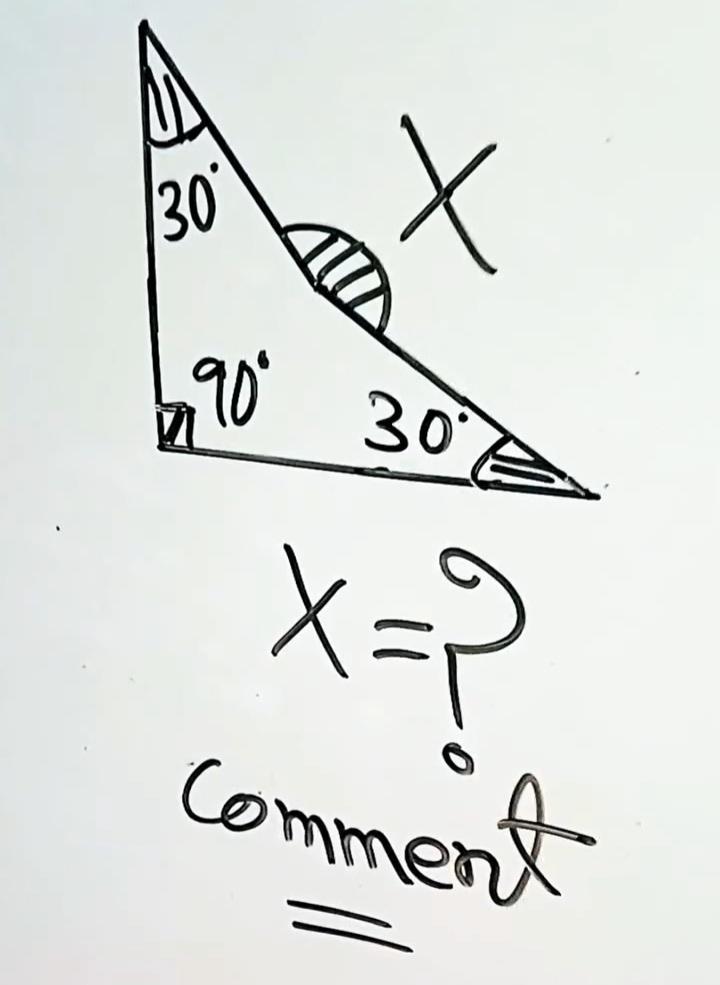 X
30°
90°
30°
X=?
Comment